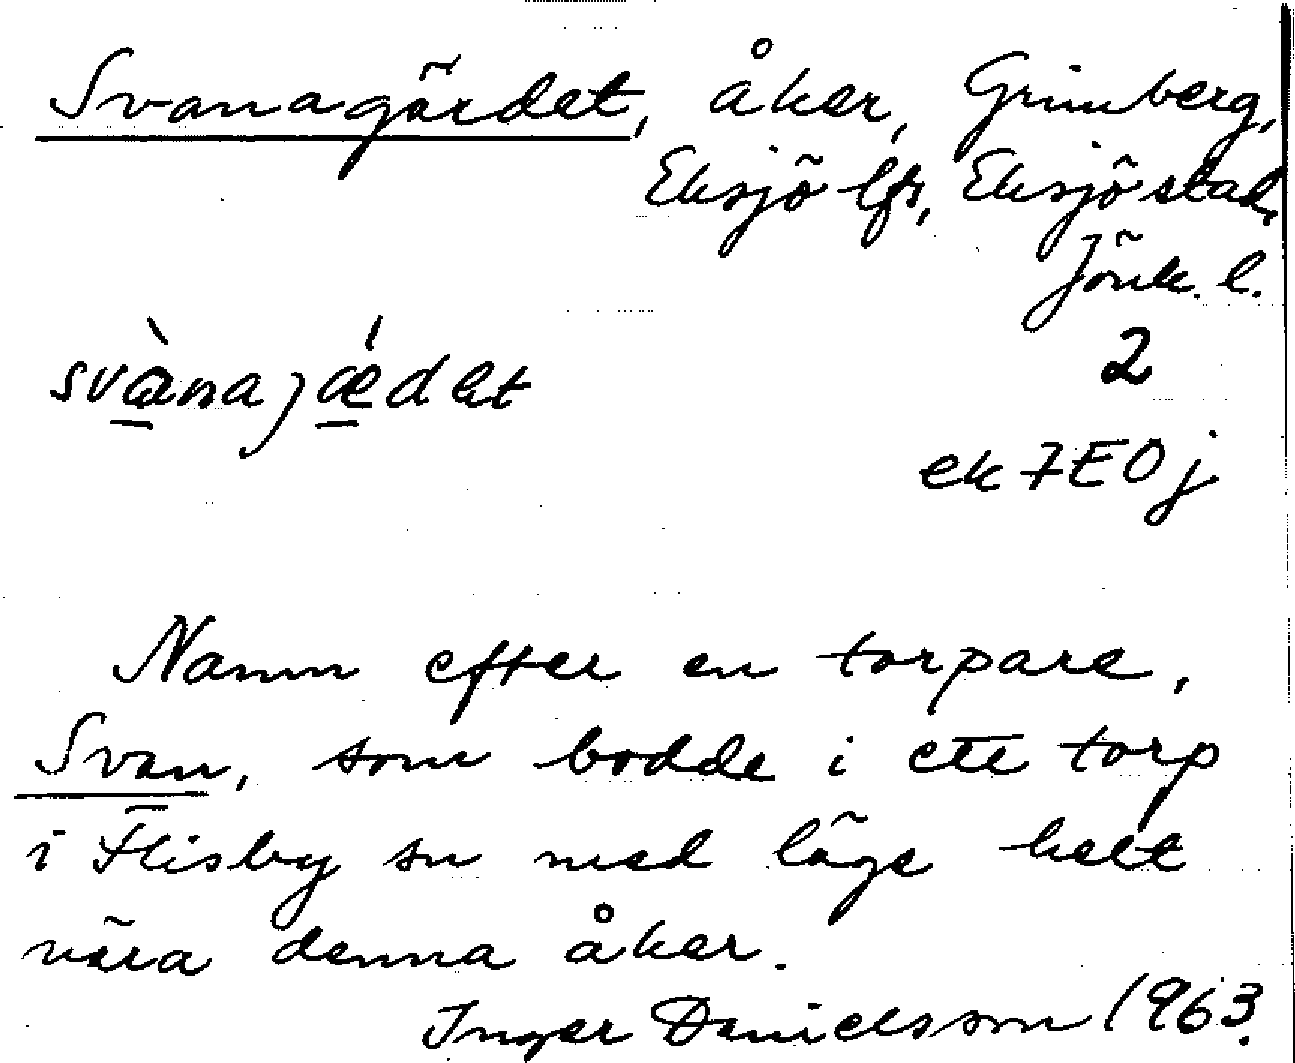 Svanagärdet, åker, Grimberg,
Eksjö lfs, Eksjö stad,
Jönk. l.
svànajǽdet
2
ek 7E0j
Namn efter en torpare,
Svan, som bodde i ett torp
i Flisby sn med läge helt
nära denna åker.
Inger Danielsson 1963.